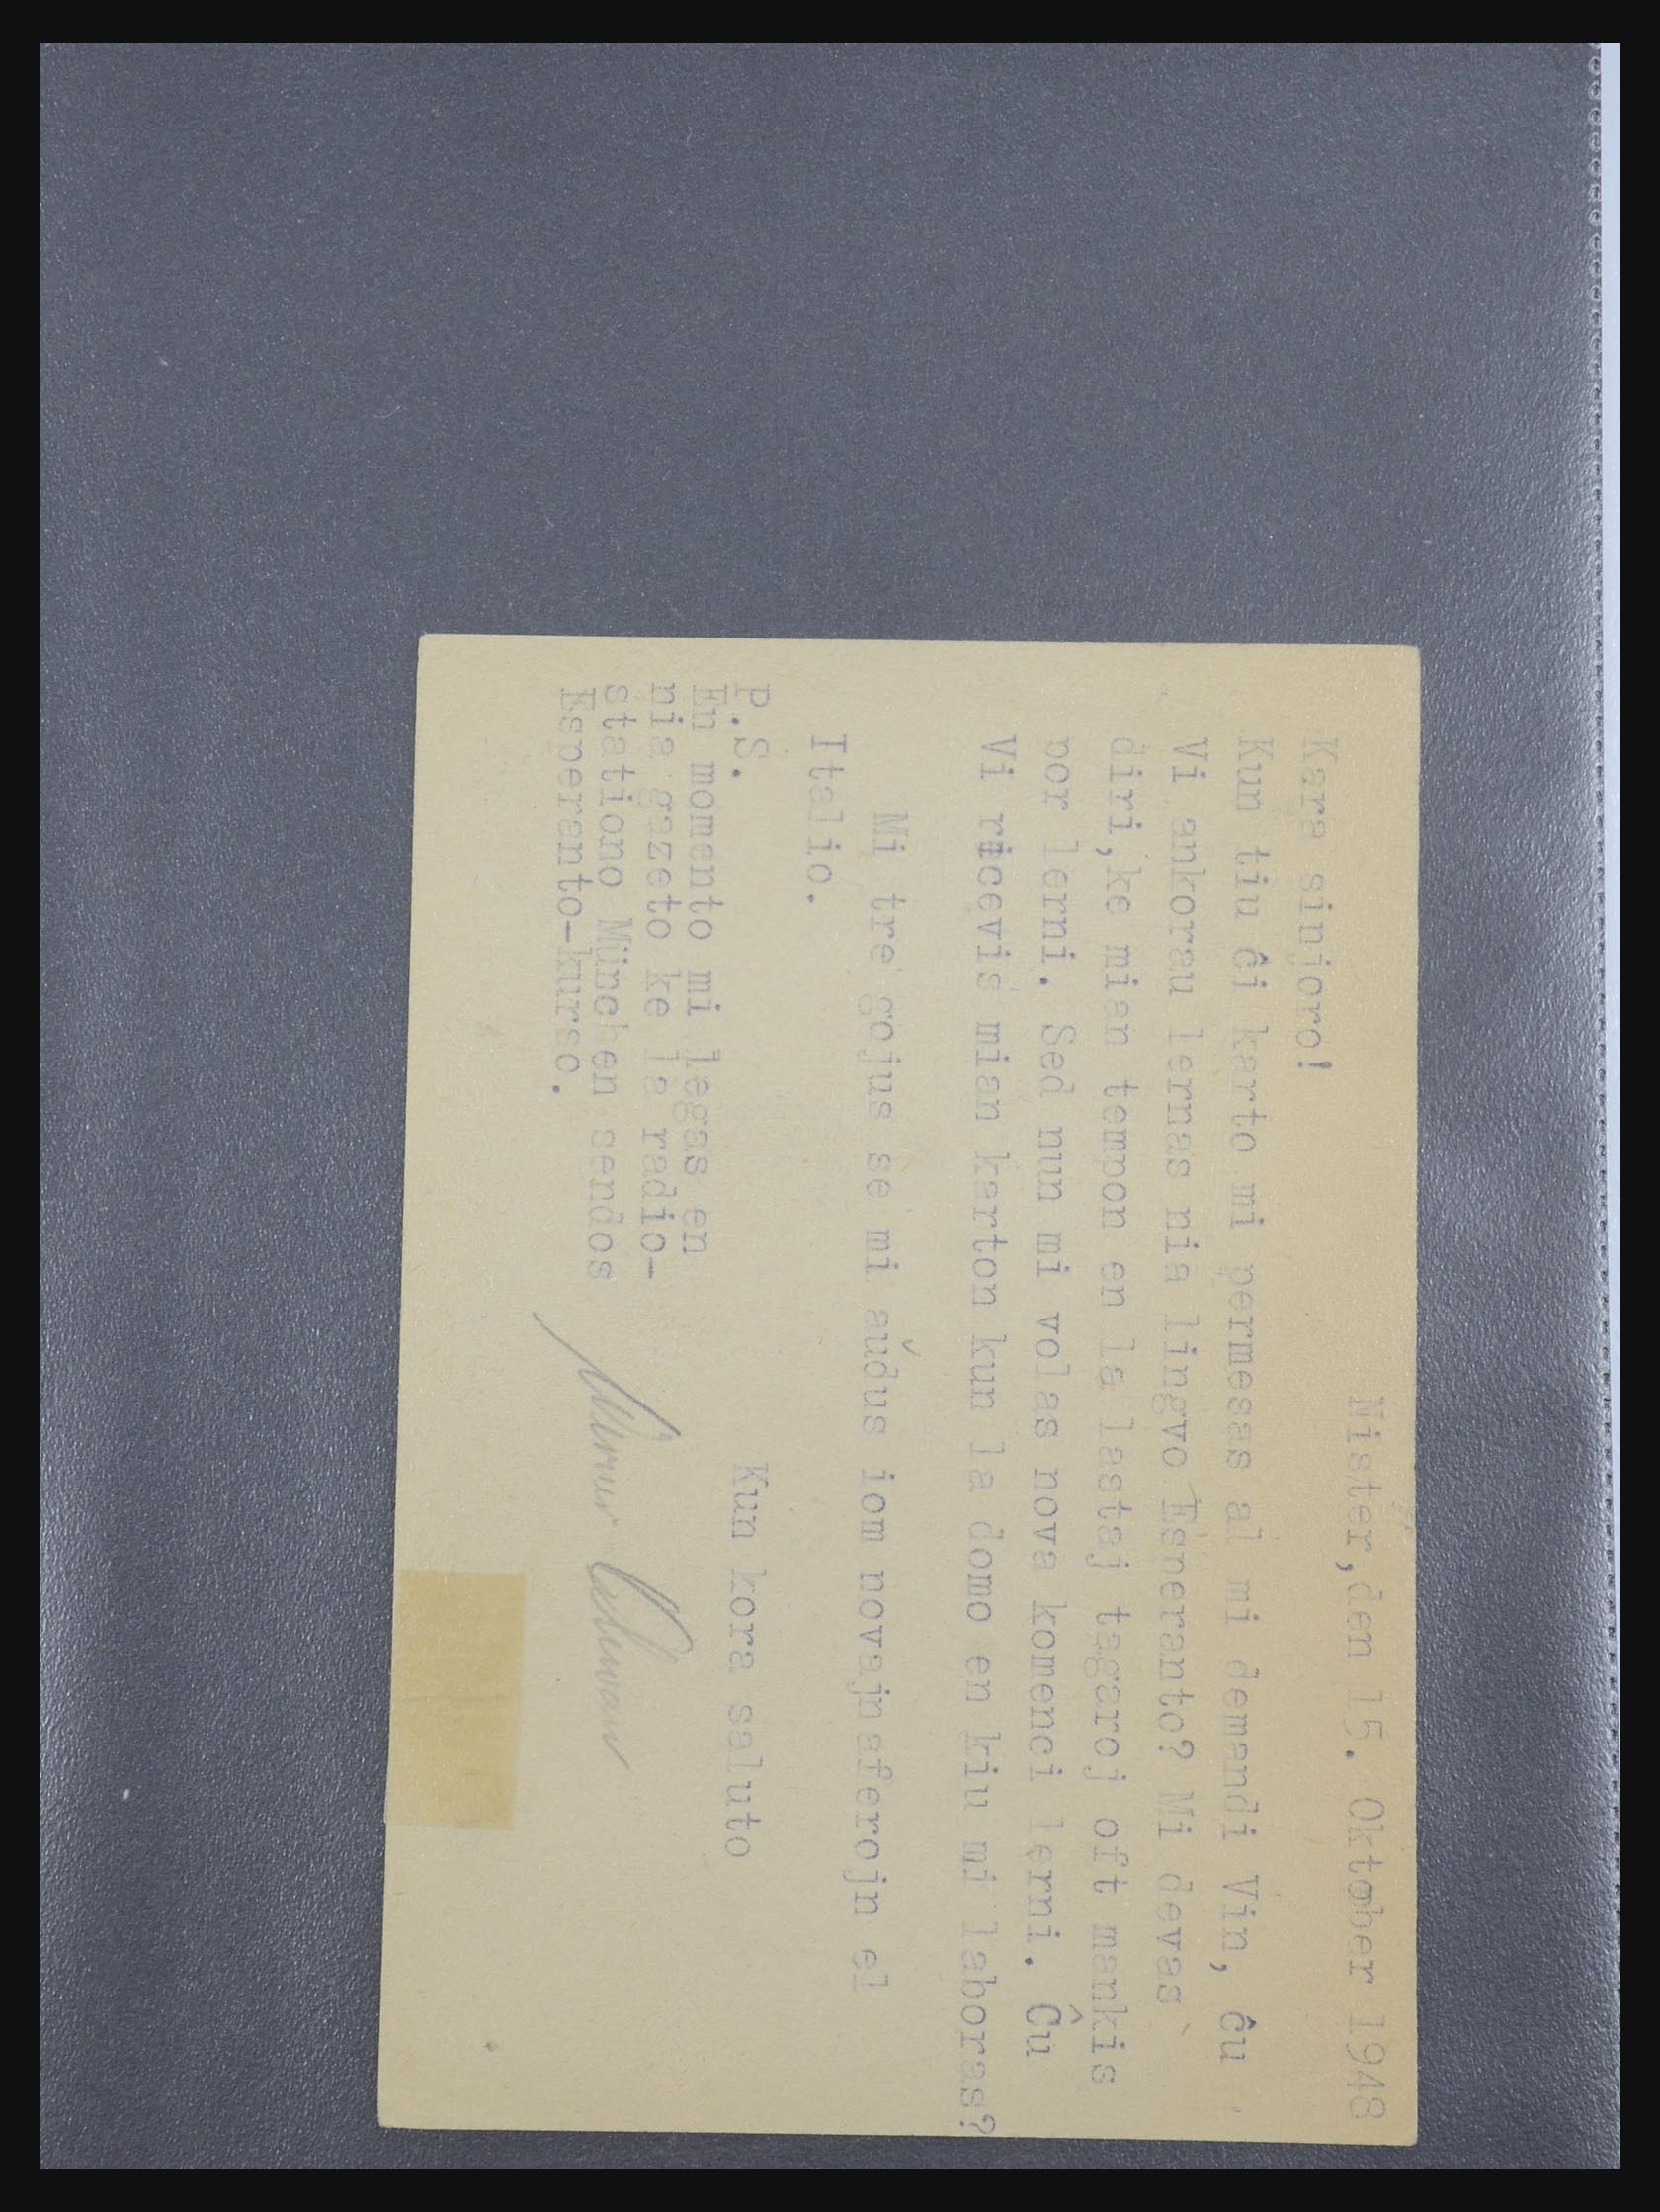 Nister,den 15. Oktober 1948
Kara sinjoro!
Kun tiu ĉi karto mi permesas al mi demandi Vin, ĉu
Vi ankorau lernas nia lingvo Esperanto? Mi devas
diri,ke mian tempon en la lastaj tagaroj oft mankis
por lerni. Sed nun mi volas nova komenci lerni. Ĉu
Vi ricevis mian karton kun la domo en kiu mi laboras?
Mi tre gojus se mi aúdus iom novajnaferojn el
Italio.
Kun kora saluto
P.S.
En momento mi legas en
nia gazeto ke la radio-
stationo München sendos
Esperanto-kurso.
Werner